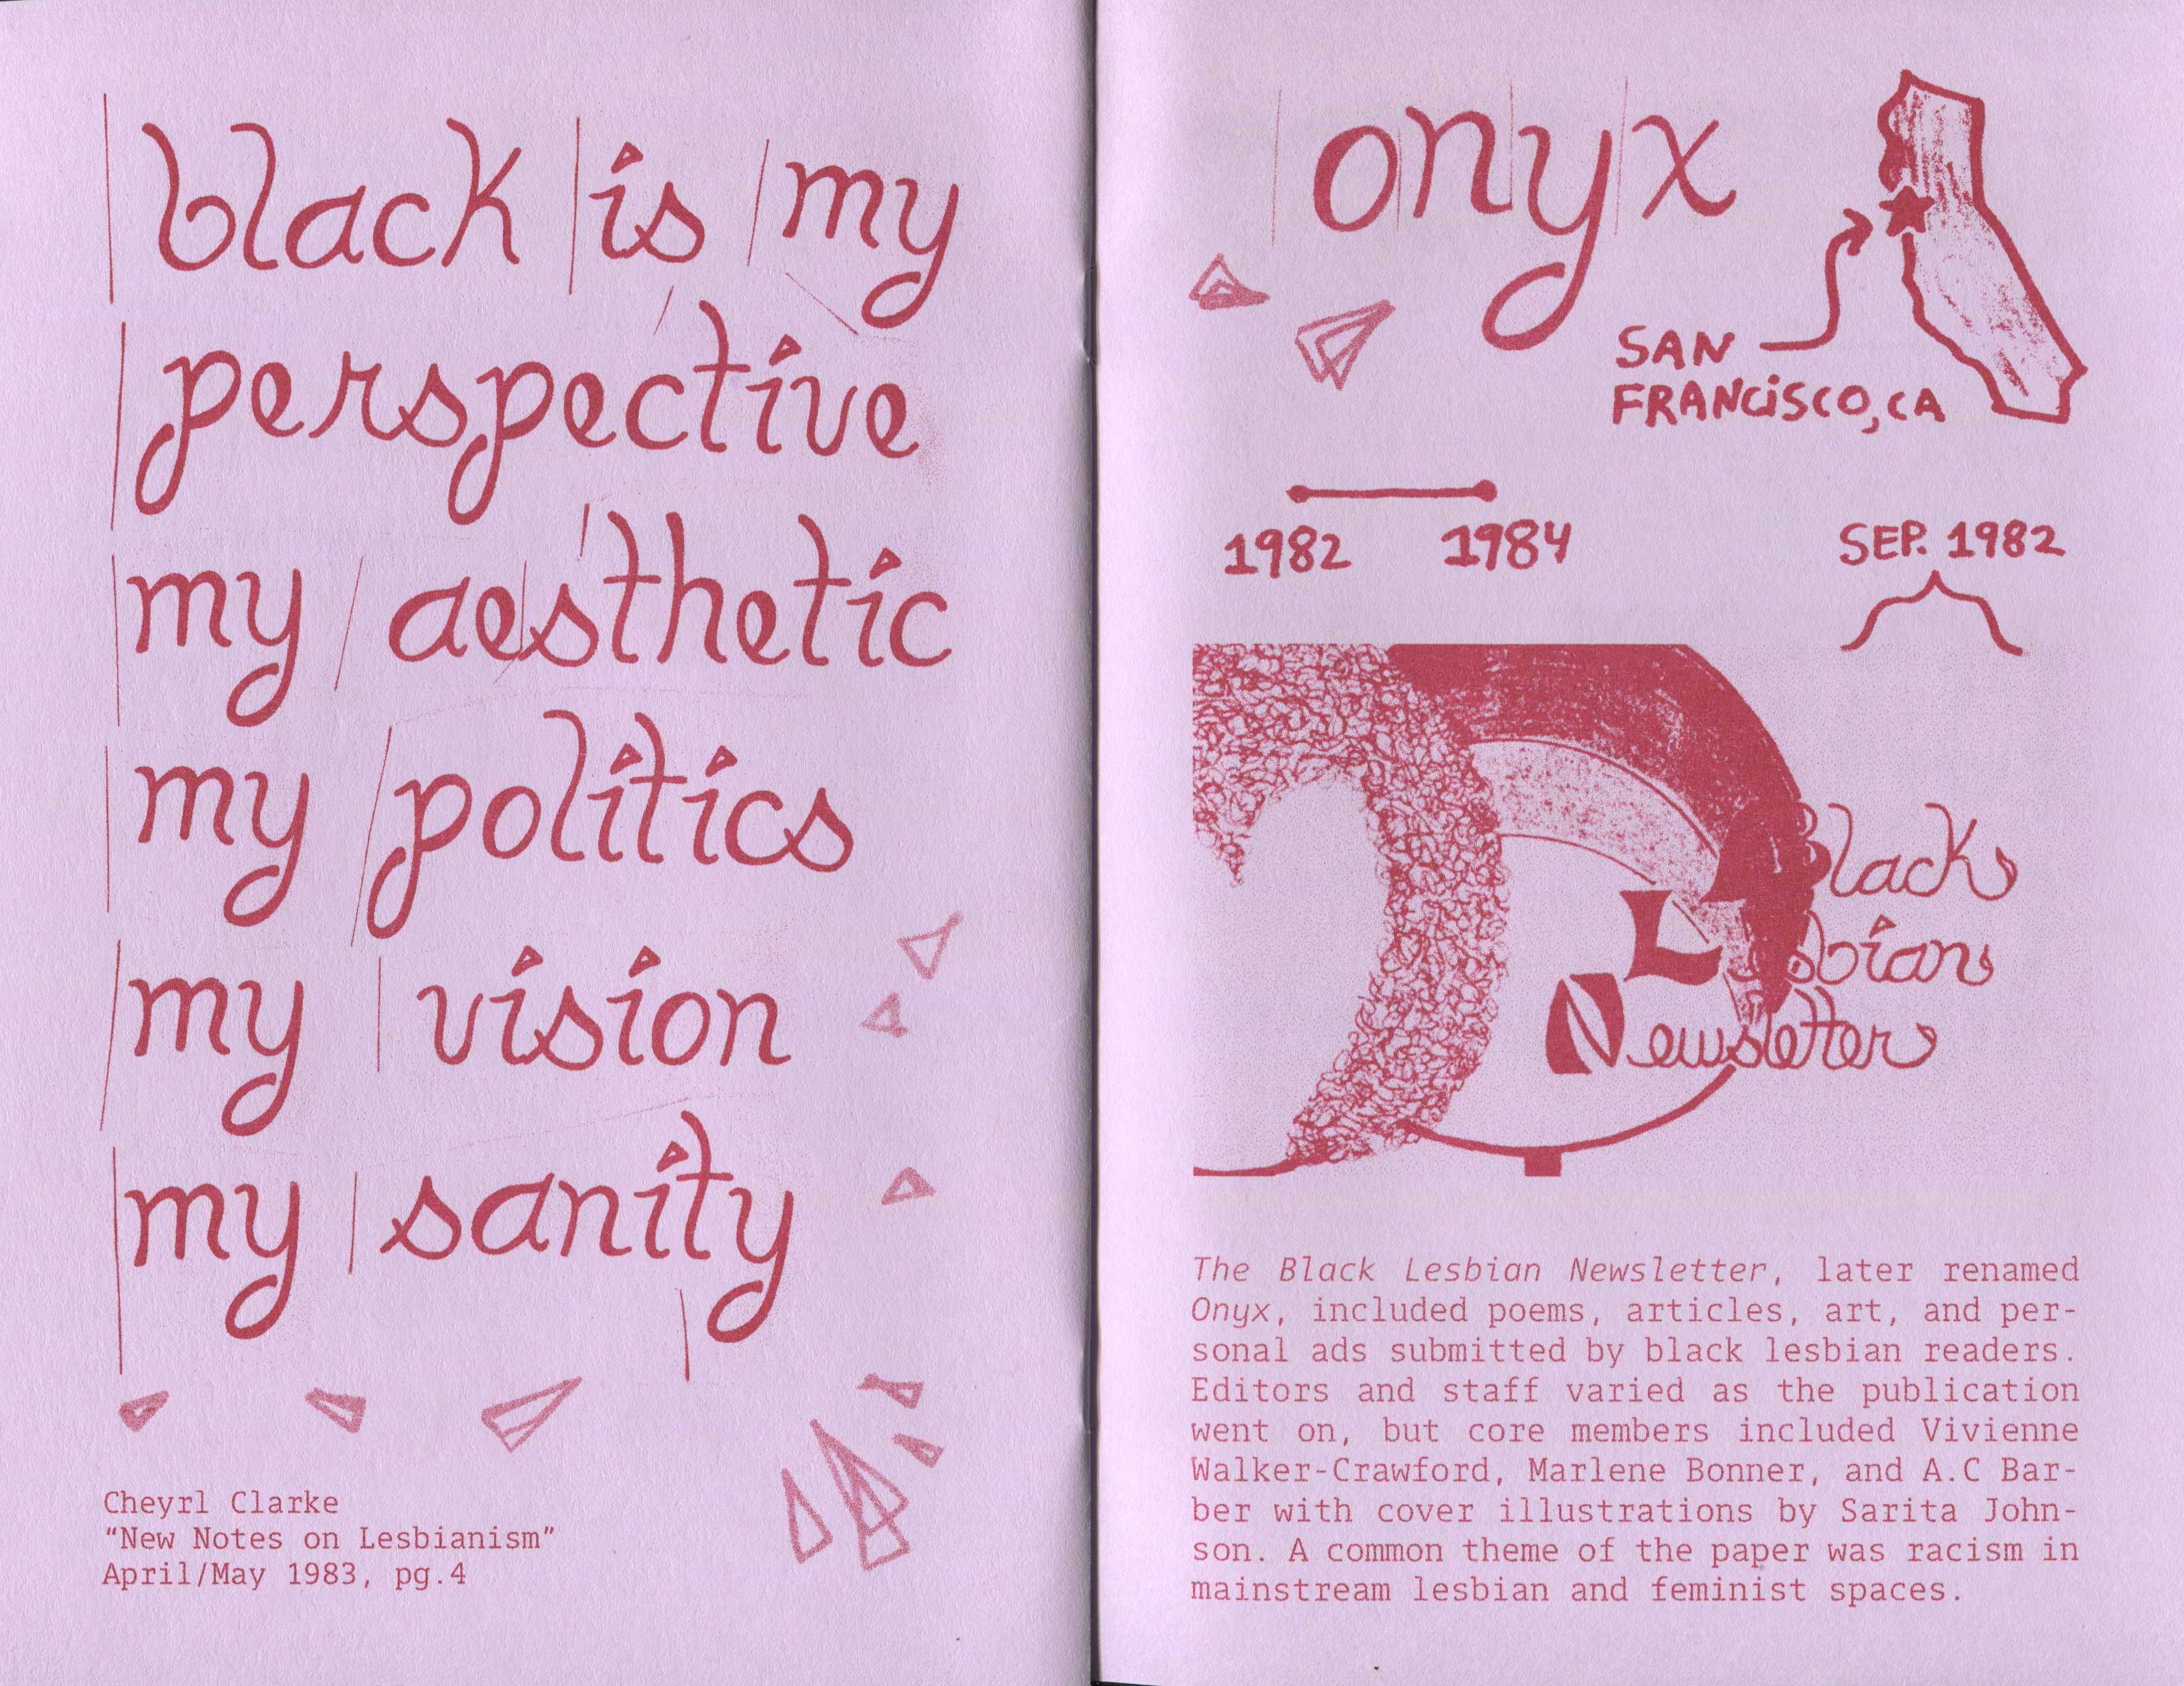 black is my
perspective
my aesthetic
my politics
my vision
my sanity
Cheyrl Clarke
“New Notes on Lesbianism”
April/May 1983, pg.4
onyx
SAN
FRANCISCO, CA
1982 1984
SEP. 1982
Black
Lesbian
Newsletter
The Black Lesbian Newsletter, later renamed
Onyx, included poems, articles, art, and per-
sonal ads submitted by black lesbian readers.
Editors and staff varied as the publication
went on, but core members included Vivienne
Walker-Crawford, Marlene Bonner, and A.C Bar-
ber with cover illustrations by Sarita John-
son. A common theme of the paper was racism in
mainstream lesbian and feminist spaces.